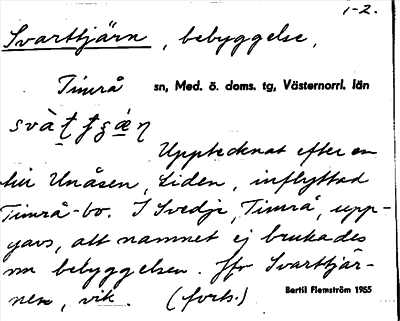 1-2.
Svarttjärn, bebyggelse,
Timrå sn, Med. ö. doms. tg, Västernorrl. län
Upptecknat efter en
till Unåsen, Liden, inflyttad
Timrå-bo. I Svedje, Timrå, upp-
gavs, att namnet ej brukades
om bebyggelsen. Jfr Svarttjär-
nen, vik. (forts.)
Bertil Flemström 1955